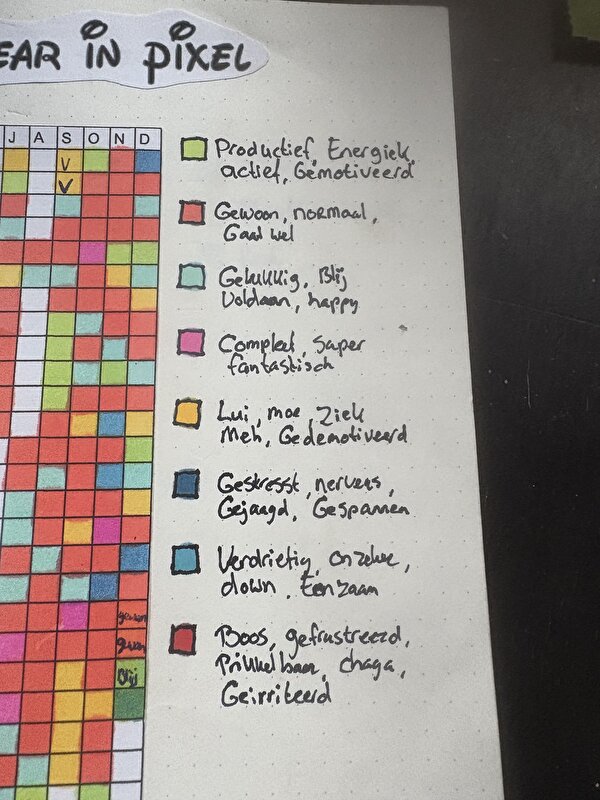 EAR IN PIXEL
J A S O N D
V
V
Productief, Energiek,
actief, Gemotiveerd
Gewoon, normaal,
Gaat wel
Gelukkig, Blij
Voldaan, happy
Compleet, super
fantastisch
Lui, moe, Ziek
Meh, Gedemotiveerd
Gestresst, nerveus,
Gejaagd, Gespannen
Verdrietig, onzeker,
down, Eenzaam
Boos, gefrustreerd,
Prikkelbaar, chaga,
Geirriteerd
gewoon
gewoon
Blij